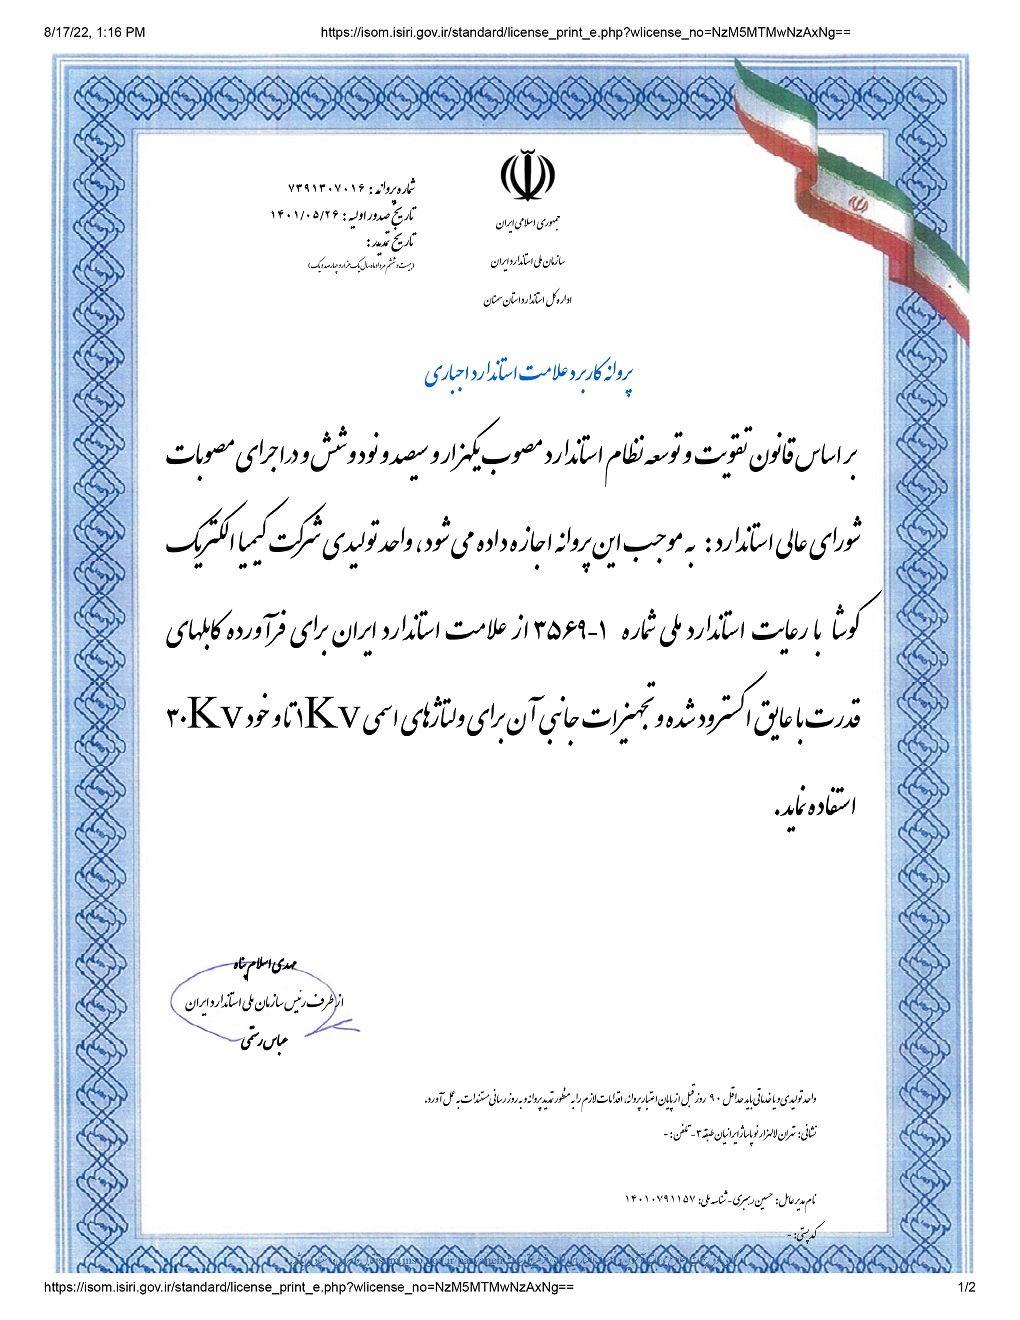 8/17/22, 1:16 PM
https://isom.isiri.gov.ir/standard/license_print_e.php?wlicense_no=NzM5MTMwNzAxNg==
جمهوری اسلامی ایران
سازمان ملی استاندارد ایران
اداره کل استاندارد استان سمنان
شماره پروانه : ۷۳۹۱۳۰۷۰۱۶
تاریخ صدور اولیه : ۱۴۰۱/۰۵/۲۶
تاریخ تمدید :
(بیست و ششم مرداد ماه سال یک هزار و چهارصد و یک)
پروانه کاربرد علامت استاندارد اجباری
بر اساس قانون تقویت و توسعه نظام استاندارد مصوب یکهزار و سیصد و نود و شش و در اجرای مصوبات
شورای عالی استاندارد : به موجب این پروانه اجازه داده می شود ، واحد تولیدی شرکت کیمیا الکتریک
کوشا با رعایت استاندارد ملی شماره ۱-۳۵۶۹ از علامت استاندارد ایران برای فرآورده کابلهای
قدرت با عایق اکسترود شده و تجهیزات جانبی آن برای ولتاژهای اسمی ۱Kv تا و خود ۳۰Kv
استفاده نماید.
مهدی اسلام پناه
از طرف رئیس سازمان ملی استاندارد ایران
عباس رستمی
واحد تولیدی و یا خدماتی باید حداقل ۹۰ روز قبل از پایان اعتبار پروانه، اقدامات لازم را به منظور تمدید پروانه و به روز رسانی مستندات به عمل آورد.
نشانی: تهران لاله‌زار نو پاساژ ایرانیان طبقه ۳ - تلفن: -
نام مدیر عامل: حسین رهبری - شناسه ملی: ۱۴۰۱۰۷۹۱۱۵۷
کد پستی: -
https://isom.isiri.gov.ir/standard/license_print_e.php?wlicense_no=NzM5MTMwNzAxNg==
1/2